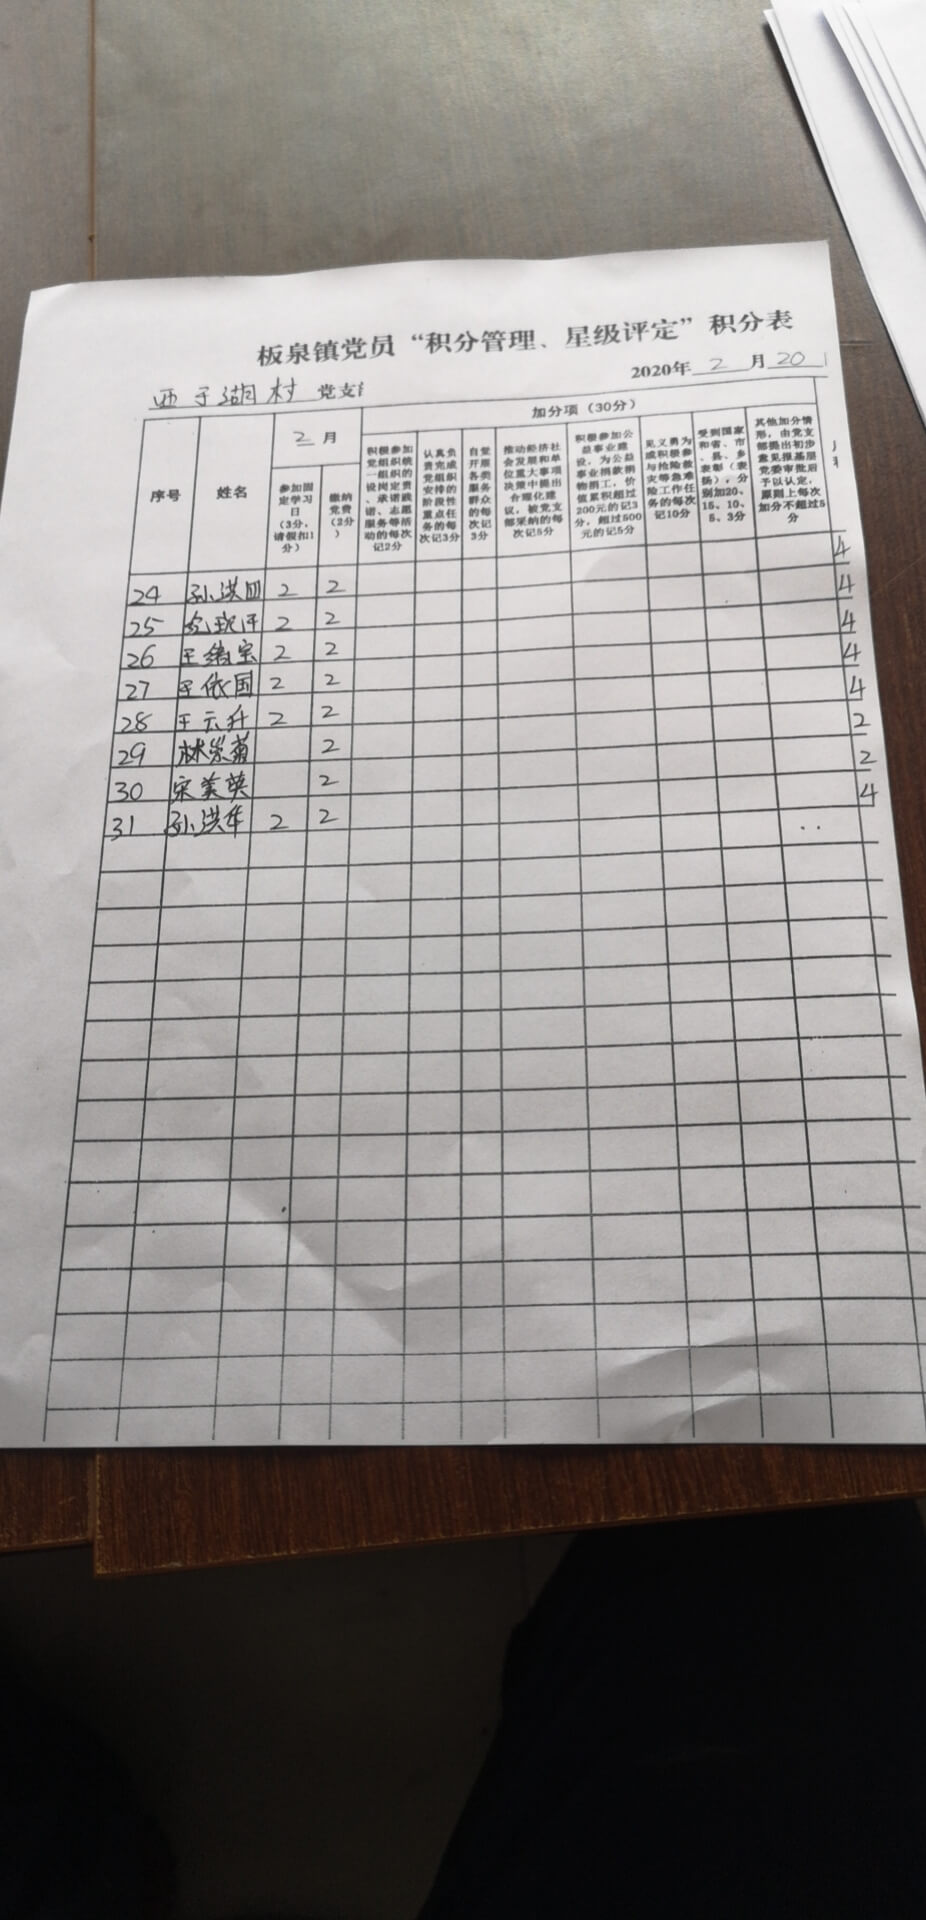 板泉镇党员“积分管理、星级评定”积分表
西于湖村 党支
2020年 2 月 20
序号
姓名
2 月
参加固
定学习
日
(3分,
请假扣1
分)
缴纳
党费
(2分
)
加分项(30分)
积极参加
党组织统
一组织的
设岗定责
、承诺践
诺、志愿
服务等活
动的每次
记2分
认真负
责完成
党组织
安排的
阶段性
重点任
务的每
次记3分
自觉
开展
各类
服务
群众
的每
次记
3分
推动经济社
会发展和单
位重大事项
决策中提出
合理化建
议,被党支
部采纳的每
次记5分
积极参加公
益事业建
设,为公益
事业捐款捐
物捐工,价
值累积超过
200元的记3
分,超过500
元的记5分
见义勇为
或积极参
与抢险救
灾等急难
险工作任
务的每次
记10分
受到国家
和省、市
、县、乡
表彰(表
扬),分
别加20、
15、10、
5、3分
其他加分情
形,由党支
部提出初步
意见报基层
党委审批后
予以认定,
原则上每次
加分不超过5
分
24 孙洪四 2 2 4
25 2 2 4
26 王绪宝 2 2 4
27 王依国 2 2 4
28 王云升 2 2 4
29 林崇菊 2 2
30 宋美英 2 2
31 孙洪华 2 2 4